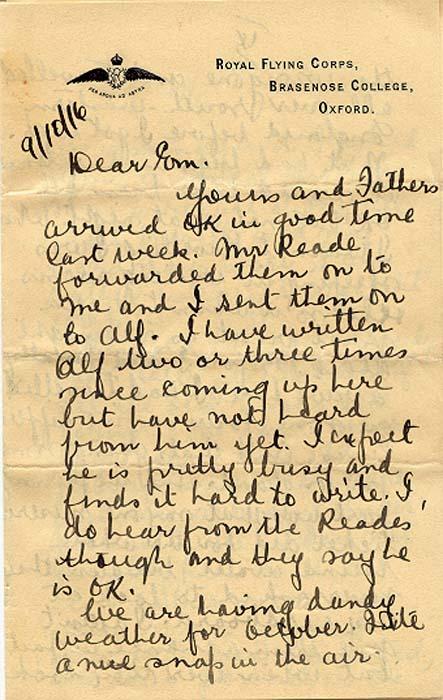 PER ARDUA AD ASTRA
ROYAL FLYING CORPS,
BRASENOSE COLLEGE,
OXFORD.
9/10/16
Dear Em.
Yours and Fathers
arrived OK in good time
last week. Mr Reade
forwarded them on to
me and I sent them on
to Alf. I have written
Alf two or three times
since coming up here
but have not heard
from him yet. I expect
he is pretty busy and
finds it hard to write. I
do hear from the Reades
though and they say he
is OK.
We are having dandy
weather for October. Quite
a nice snap in the air.